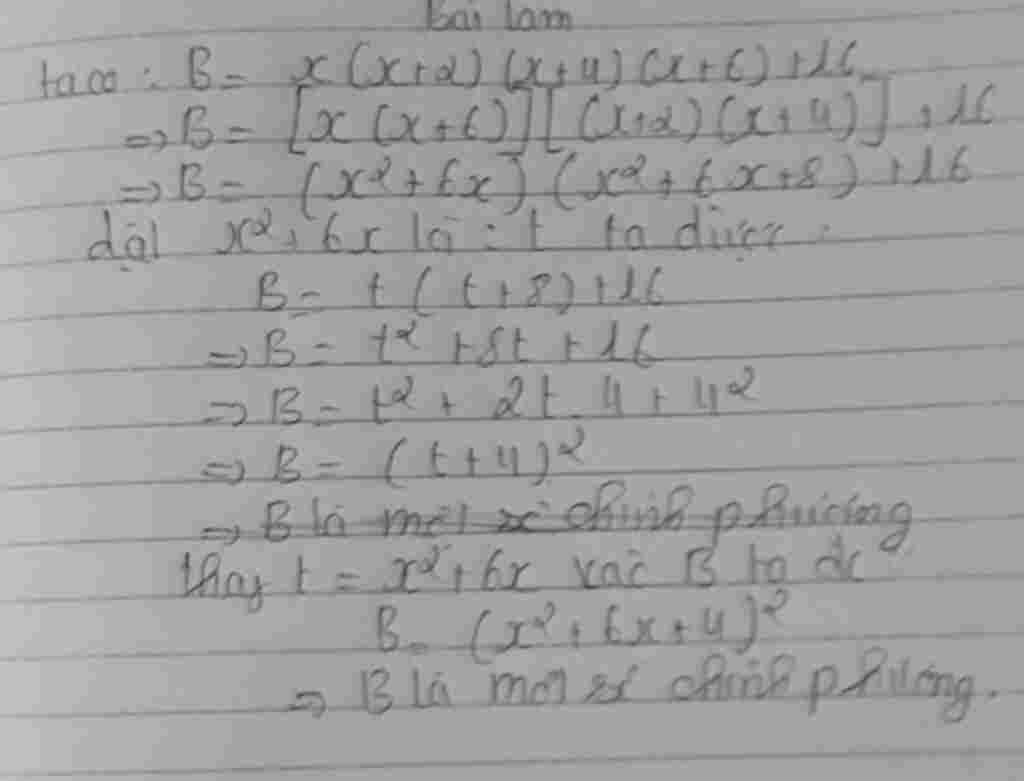 Bài làm
ta có : B = x(x+2)(x+4)(x+6)+16
⇒ B = [x(x+6)][(x+2)(x+4)]+16
⇒ B = (x²+6x)(x²+6x+8)+16
đặt x²+6x là : t ta được :
B = t(t+8)+16
⇒ B = t²+8t+16
⇒ B = t²+2t.4+4²
⇒ B = (t+4)²
⇒ B là một số chính phương
thay t = x²+6x vào B ta dc
B = (x²+6x+4)²
⇒ B là một số chính phương.